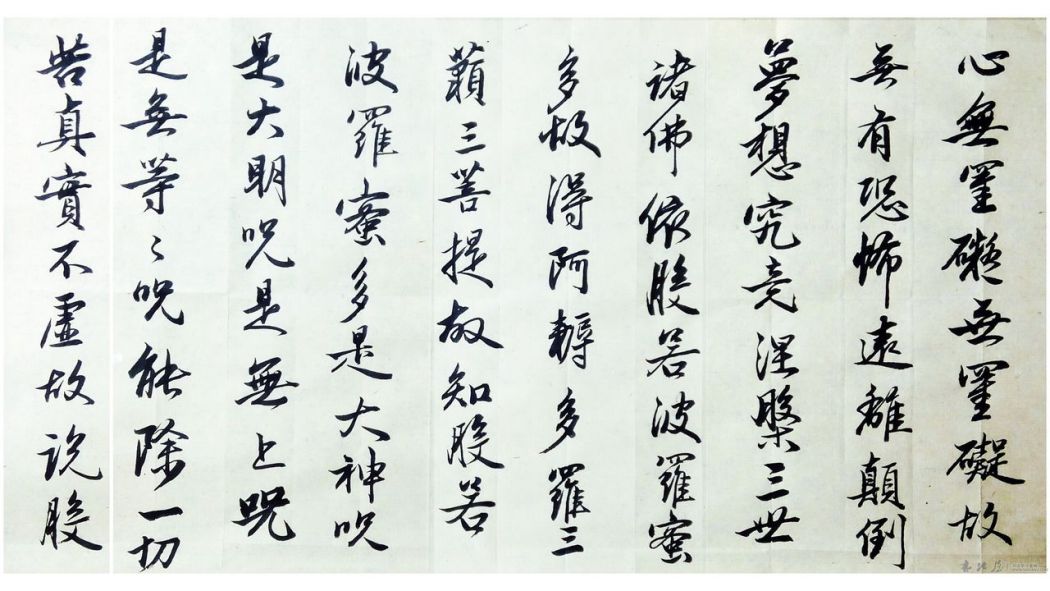 心無罣礙無罣礙故
無有恐怖遠離顛倒
夢想究竟涅槃三世
諸佛依般若波羅蜜
多故得阿耨多羅三
藐三菩提故知般若
波羅蜜多是大神咒
是大明咒是無上咒
是無等〻咒能除一切
苦真實不虛故說般